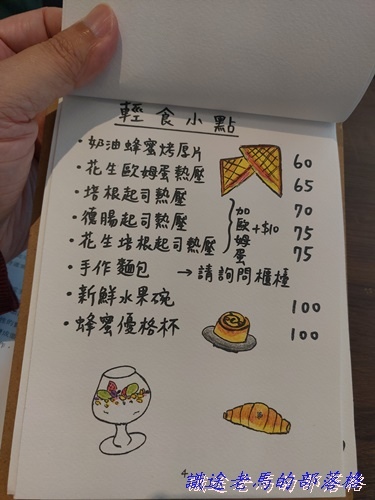 輕食小點
·奶油蜂蜜烤厚片 60
·花生歐姆蛋熱壓 65
·培根起司熱壓 70
·德腸起司熱壓 75
·花生培根起司熱壓 75
加歐姆蛋 +$10
·手作麵包 →請詢問櫃檯
·新鮮水果碗 100
·蜂蜜優格杯 100
4
識途老馬的部落格